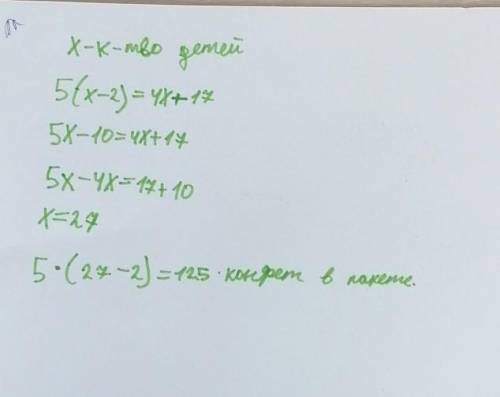 x-к-тво детей
5(x-2)=4x+17
5x-10=4x+17
5x-4x=17+10
x=27
5·(27-2)=125·конфет в пакете.